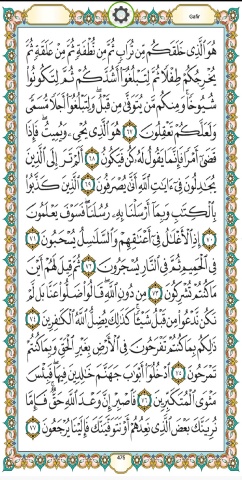 Gafir
هُوَ ٱلَّذِى خَلَقَكُم مِّن تُرَابٍ ثُمَّ مِن نُّطْفَةٍ ثُمَّ مِنْ عَلَقَةٍ ثُمَّ
يُخْرِجُكُمْ طِفْلًا ثُمَّ لِتَبْلُغُوٓا۟ أَشُدَّكُمْ ثُمَّ لِتَكُونُوا۟
شُيُوخًا ۚ وَمِنكُم مَّن يُتَوَفَّىٰ مِن قَبْلُ ۖ وَلِتَبْلُغُوٓا۟ أَجَلًا مُّسَمًّى
وَلَعَلَّكُمْ تَعْقِلُونَ ٦٧ هُوَ ٱلَّذِى يُحْىِۦ وَيُمِيتُ ۖ فَإِذَا
قَضَىٰٓ أَمْرًا فَإِنَّمَا يَقُولُ لَهُۥ كُن فَيَكُونُ ٦٨ أَلَمْ تَرَ إِلَى ٱلَّذِينَ
يُجَٰدِلُونَ فِىٓ ءَايَٰتِ ٱللَّهِ أَنَّىٰ يُصْرَفُونَ ٦٩ ٱلَّذِينَ كَذَّبُوا۟
بِٱلْكِتَٰبِ وَبِمَآ أَرْسَلْنَا بِهِۦ رُسُلَنَا ۖ فَسَوْفَ يَعْلَمُونَ
٧٠ إِذِ ٱلْأَغْلَٰلُ فِىٓ أَعْنَٰقِهِمْ وَٱلسَّلَٰسِلُ يُسْحَبُونَ ٧١
فِى ٱلْحَمِيمِ ثُمَّ فِى ٱلنَّارِ يُسْجَرُونَ ٧٢ ثُمَّ قِيلَ لَهُمْ أَيْنَ
مَا كُنتُمْ تُشْرِكُونَ ٧٣ مِن دُونِ ٱللَّهِ ۖ قَالُوا۟ ضَلُّوا۟ عَنَّا بَل لَّمْ
نَكُن نَّدْعُوا۟ مِن قَبْلُ شَيْـًٔا ۚ كَذَٰلِكَ يُضِلُّ ٱللَّهُ ٱلْكَٰفِرِينَ ٧٤
ذَٰلِكُم بِمَا كُنتُمْ تَفْرَحُونَ فِى ٱلْأَرْضِ بِغَيْرِ ٱلْحَقِّ وَبِمَا كُنتُمْ
تَمْرَحُونَ ٧٥ ٱدْخُلُوٓا۟ أَبْوَٰبَ جَهَنَّمَ خَٰلِدِينَ فِيهَا ۖ فَبِئْسَ
مَثْوَى ٱلْمُتَكَبِّرِينَ ٧٦ فَٱصْبِرْ إِنَّ وَعْدَ ٱللَّهِ حَقٌّ ۚ فَإِمَّا
نُرِيَنَّكَ بَعْضَ ٱلَّذِى نَعِدُهُمْ أَوْ نَتَوَفَّيَنَّكَ فَإِلَيْنَا يُرْجَعُونَ ٧٧
475